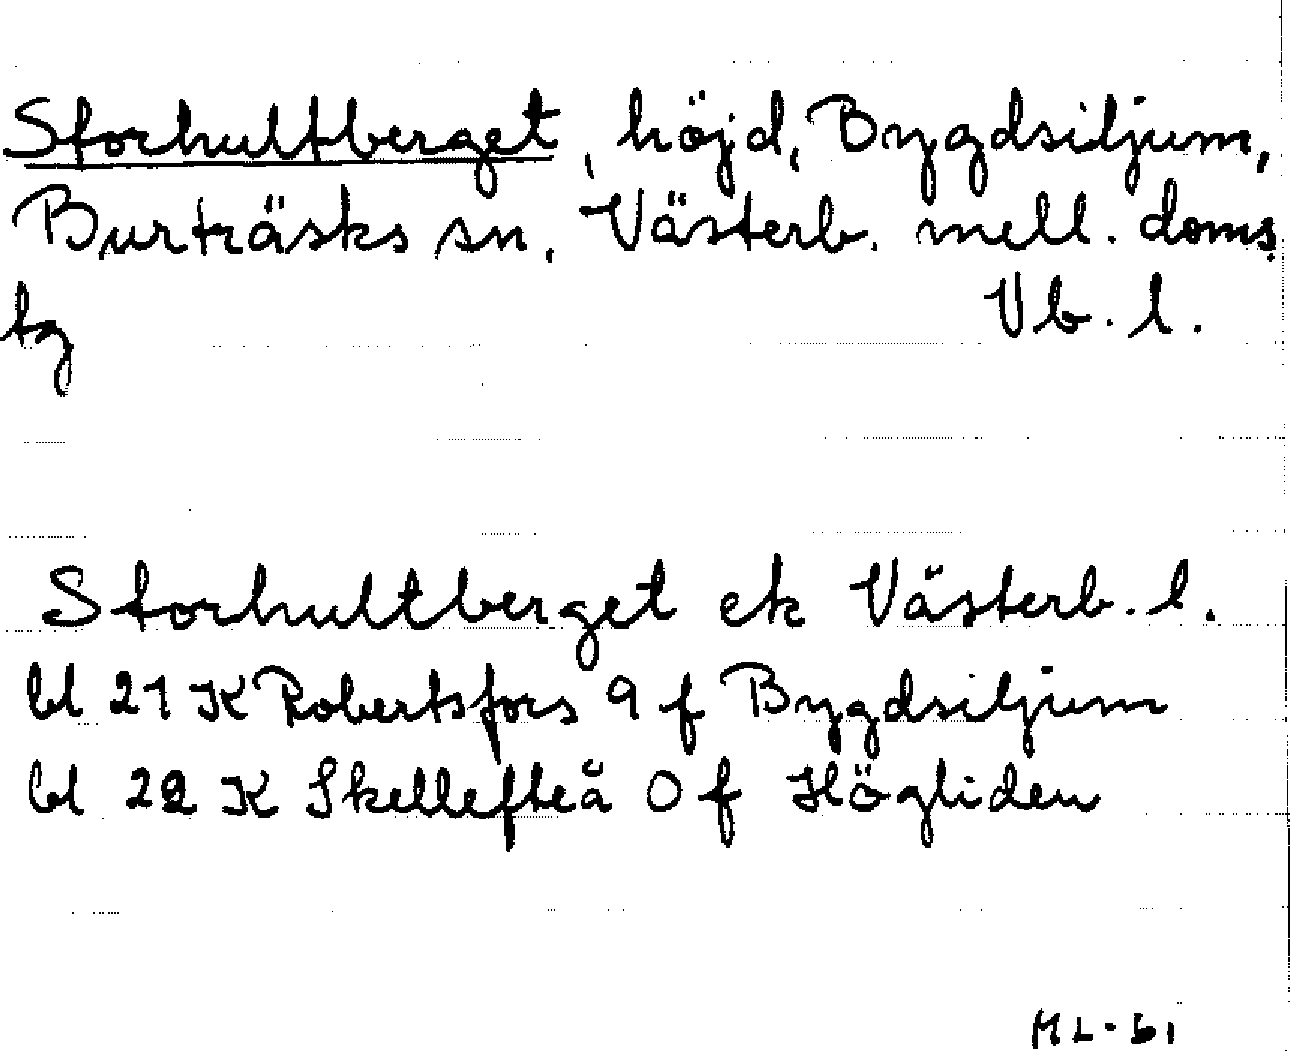 Storhultberget, höjd, Bygdsiljum,
Burträsks sn, Västerb. mell. doms.
tg Vb. l.
Storhultberget ek Västerb. l.
bl 21 K Robertsfors 9 f Bygdsiljum
bl 22 K Skellefteå 0 f Högliden
ML-61